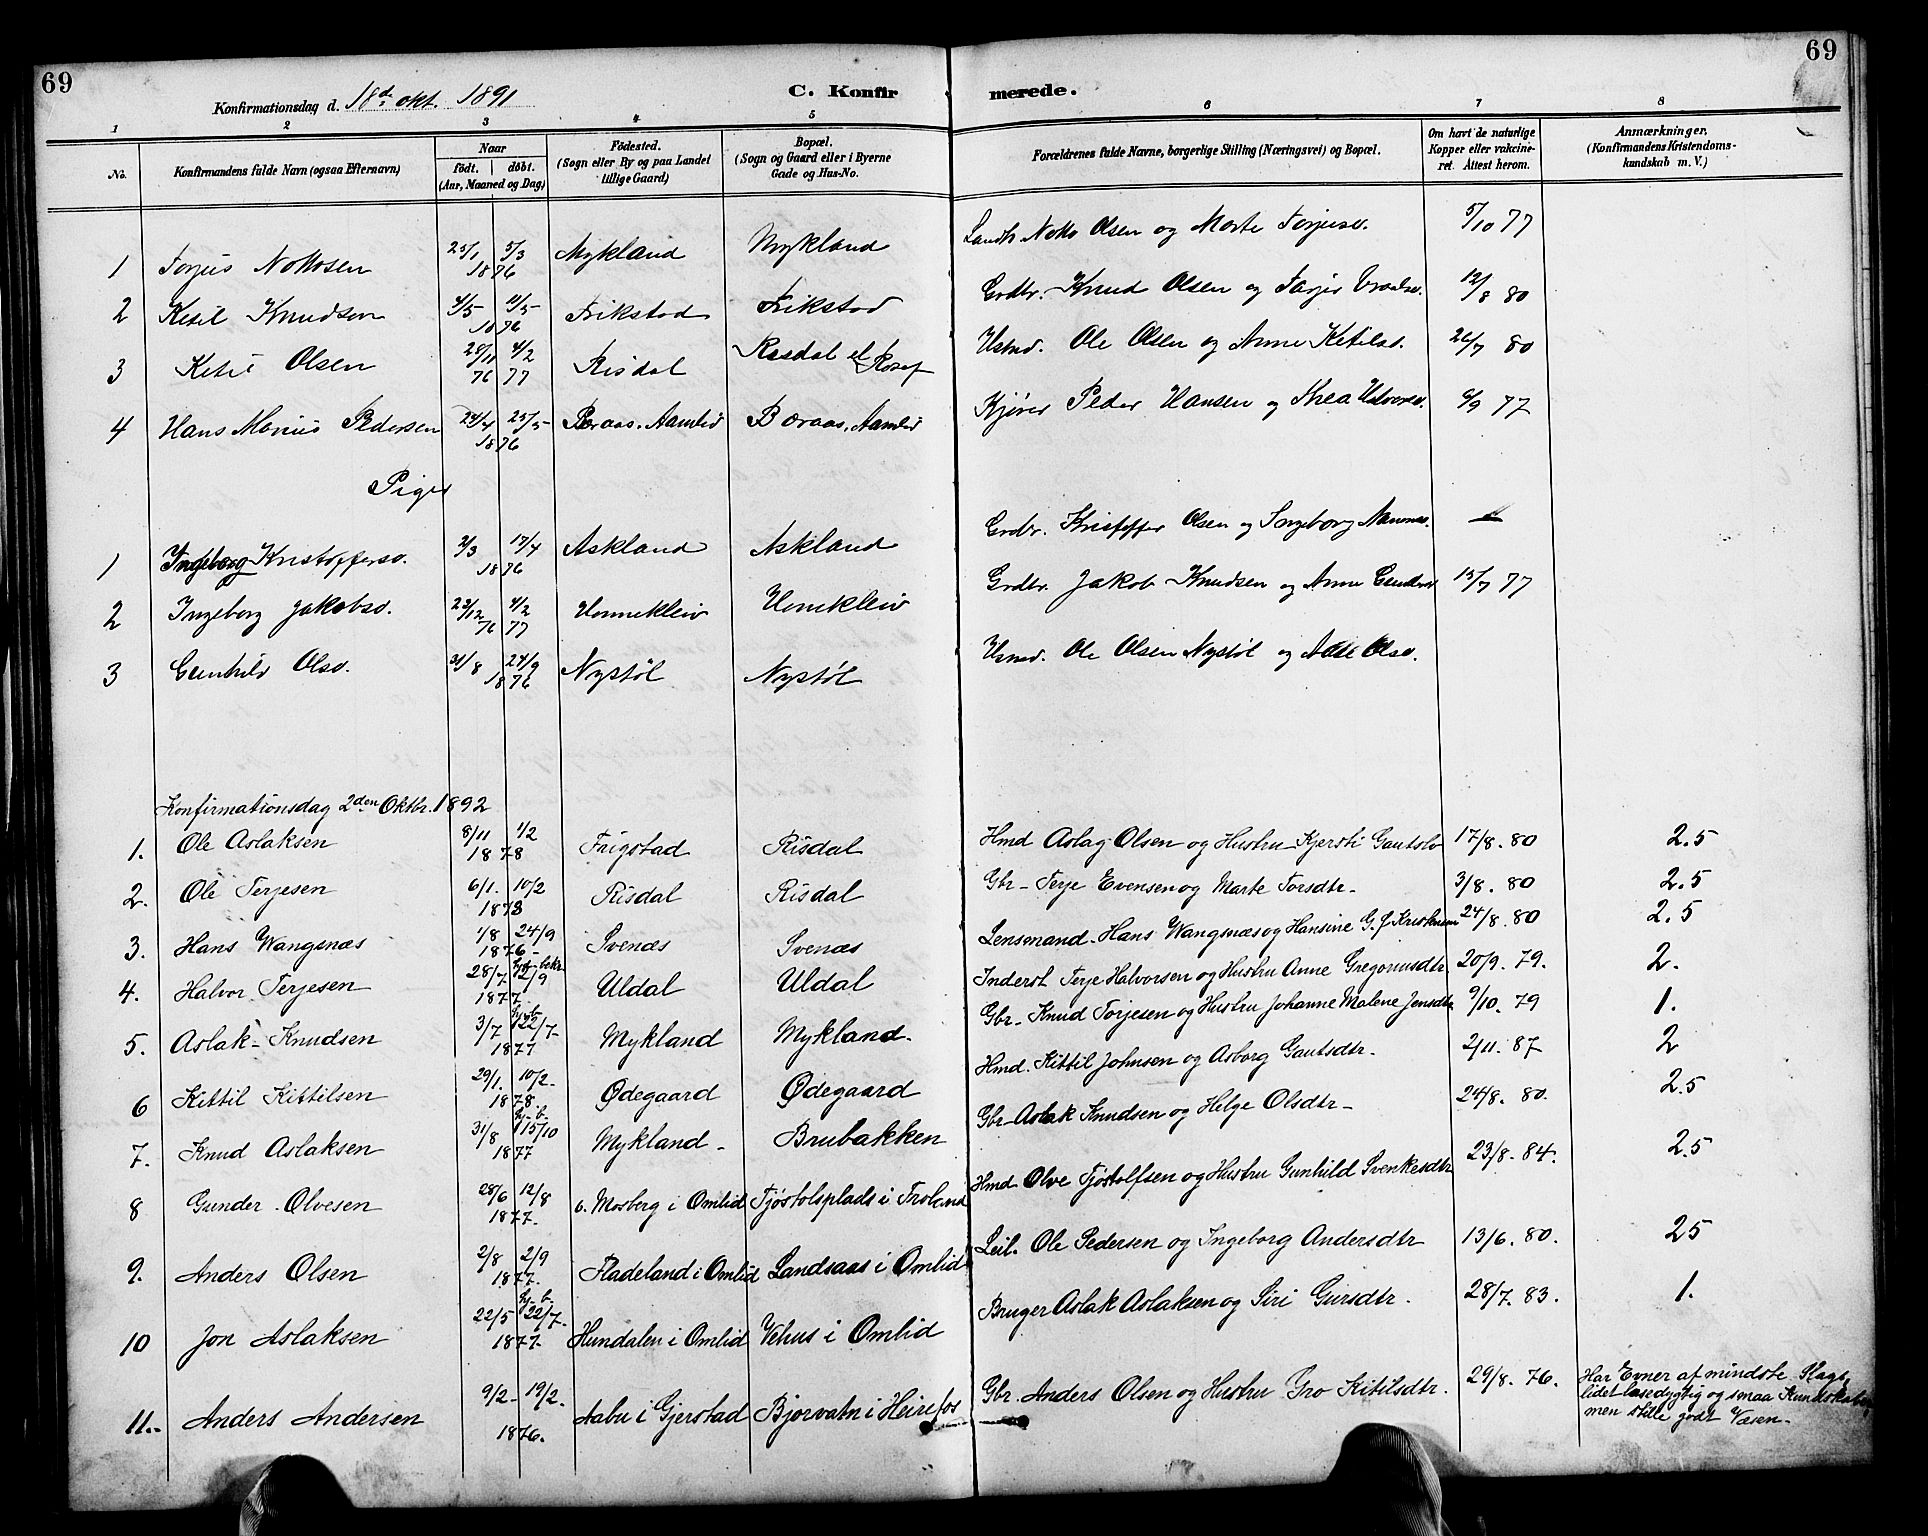 69
69
Konfirmationsdag d. 18de okt. 1891
C. Konfirmerede.
1 2 3 4 5 6 7 8
No.
Konfirmandens fulde Navn (ogsaa Efternavn)
Naar
født. døbt.
(Aar, Maaned og Dag)
Fødested.
(Sogn eller By og paa Landet
tillige Gaard)
Bopæl.
(Sogn og Gaard eller i Byerne
Gade og Hus-No.
Forældrenes fulde Navne, borgerlige Stilling (Næringsvei) og Bopæl.
Om havt de naturlige
Kopper eller vakcine-
ret. Attest herom.
Anmærkninger.
(Konfirmandens Kristendoms-
kundskab m. V.)
1 Torjus Nottosen 25/1 5/3 1876 Mykland Mykland Notto Olsen og Marte Torjusd. 5/10 77
2 Ketil Knudsen 4/5 11/5 1876 Frikstad Frikstad Grdbr. Knud Olsen og Torjer 12/8 80
3 Ketil Olsen 4/2 76 77 Risdal Risdal Ole Olsen og Anne Ketilsd. 80
4 Hans Marius Pedersen 24/4 25/5 1876 Beraas, Aamlid Beraas, Aamlid Kjører Peder Hansen og Thea 6/9 77
Piger
1 Ingeborg Kristoffersd. 2/3 17/4 1876 Askland Askland Grdbr. Kristoffer Olsen og Ingeborg
2 Ingeborg Jakobsd. 4/2 76 77 Honnekleiv Honnekleiv Grdbr. Jakob Knudsen og Anne 13/7 77
3 Gunhild Olsd. 31/8 24/9 1876 Nystøl Nystøl Ole Olsen Nystøl og Olsd.
Konfirmationsdag 2den Oktbr. 1892
1. Ole Aslaksen 8/11 1/2 1878 Frigstad Risdal Hmd Aslag Olsen og Hustru Kjersti Gautsd 17/8. 80 2.5
2. Ole Terjesen 6/1. 10/2 1878 Risdal Risdal Gbr- Terje Evensen og Marte Torsdtr- 3/8. 80 2.5
3. Hans Wangsnæs 1/8 24/9 1876- Svenæs Svenæs Lensmand. Hans Wangsnæs og Hansine G. J. 24/8. 80 2.5
4. Halvor Terjesen 28/7 2/9 1877. Uldal Uldal Inderst Terje Halvorsen og Hustru Anne Gregoriusdtr 20/9. 79. 2.
5. Aslak- Knudsen 3/7 22/7- 1877 Mykland Mykland. Gbr- Knud Torjesen og Hustru Johanne Malene Jensdtr 9/10. 79 1.
6 Kittil Kittilsen 29/1. 10/2- 1878. Ødegaard Ødegaard Hmd. Kittil Johnsen og Asborg Gautsdtr- 2/11. 87 2
7. Knud Aslaksen 31/8 15/10 1877 Mykland- Brubakken Gbr- Aslak Knudsen og Helge Olsdtr- 24/8. 80. 2.5
8 Gunder. Olvesen 28/6 12/8 1877. Mosberg i Omlid Tjøstolsplads i Froland Hmd Olve Tjøstolfsen og Hustru Gunhild Svenkesdtr 23/8. 84. 2.5
9. Anders Olsen 2/8 2/9 1877. Fladeland i Omlid Landsaas i Omlid Leil. Ole Pedersen og Ingeborg Andersdtr 13/6. 80. 25
10 Jon Aslaksen 22/5 22/7- 1877. Hundalen i Omlid Vehus i Omlid Bruger Aslak Aslaksen og Siri Gursdtr. 28/7. 83. 1.
11. Anders Andersen 9/2- 19/2. 1876. Aabu i Gjerstad Bjorvatn i Heirefos Gbr. Anders Olsen og Hustru Gro Kitilsdtr. 29/8. 76. Har Evner af mindste Slags,
lidet læsedygtig og smaa Kundskaber,
men stille godt Væsen-